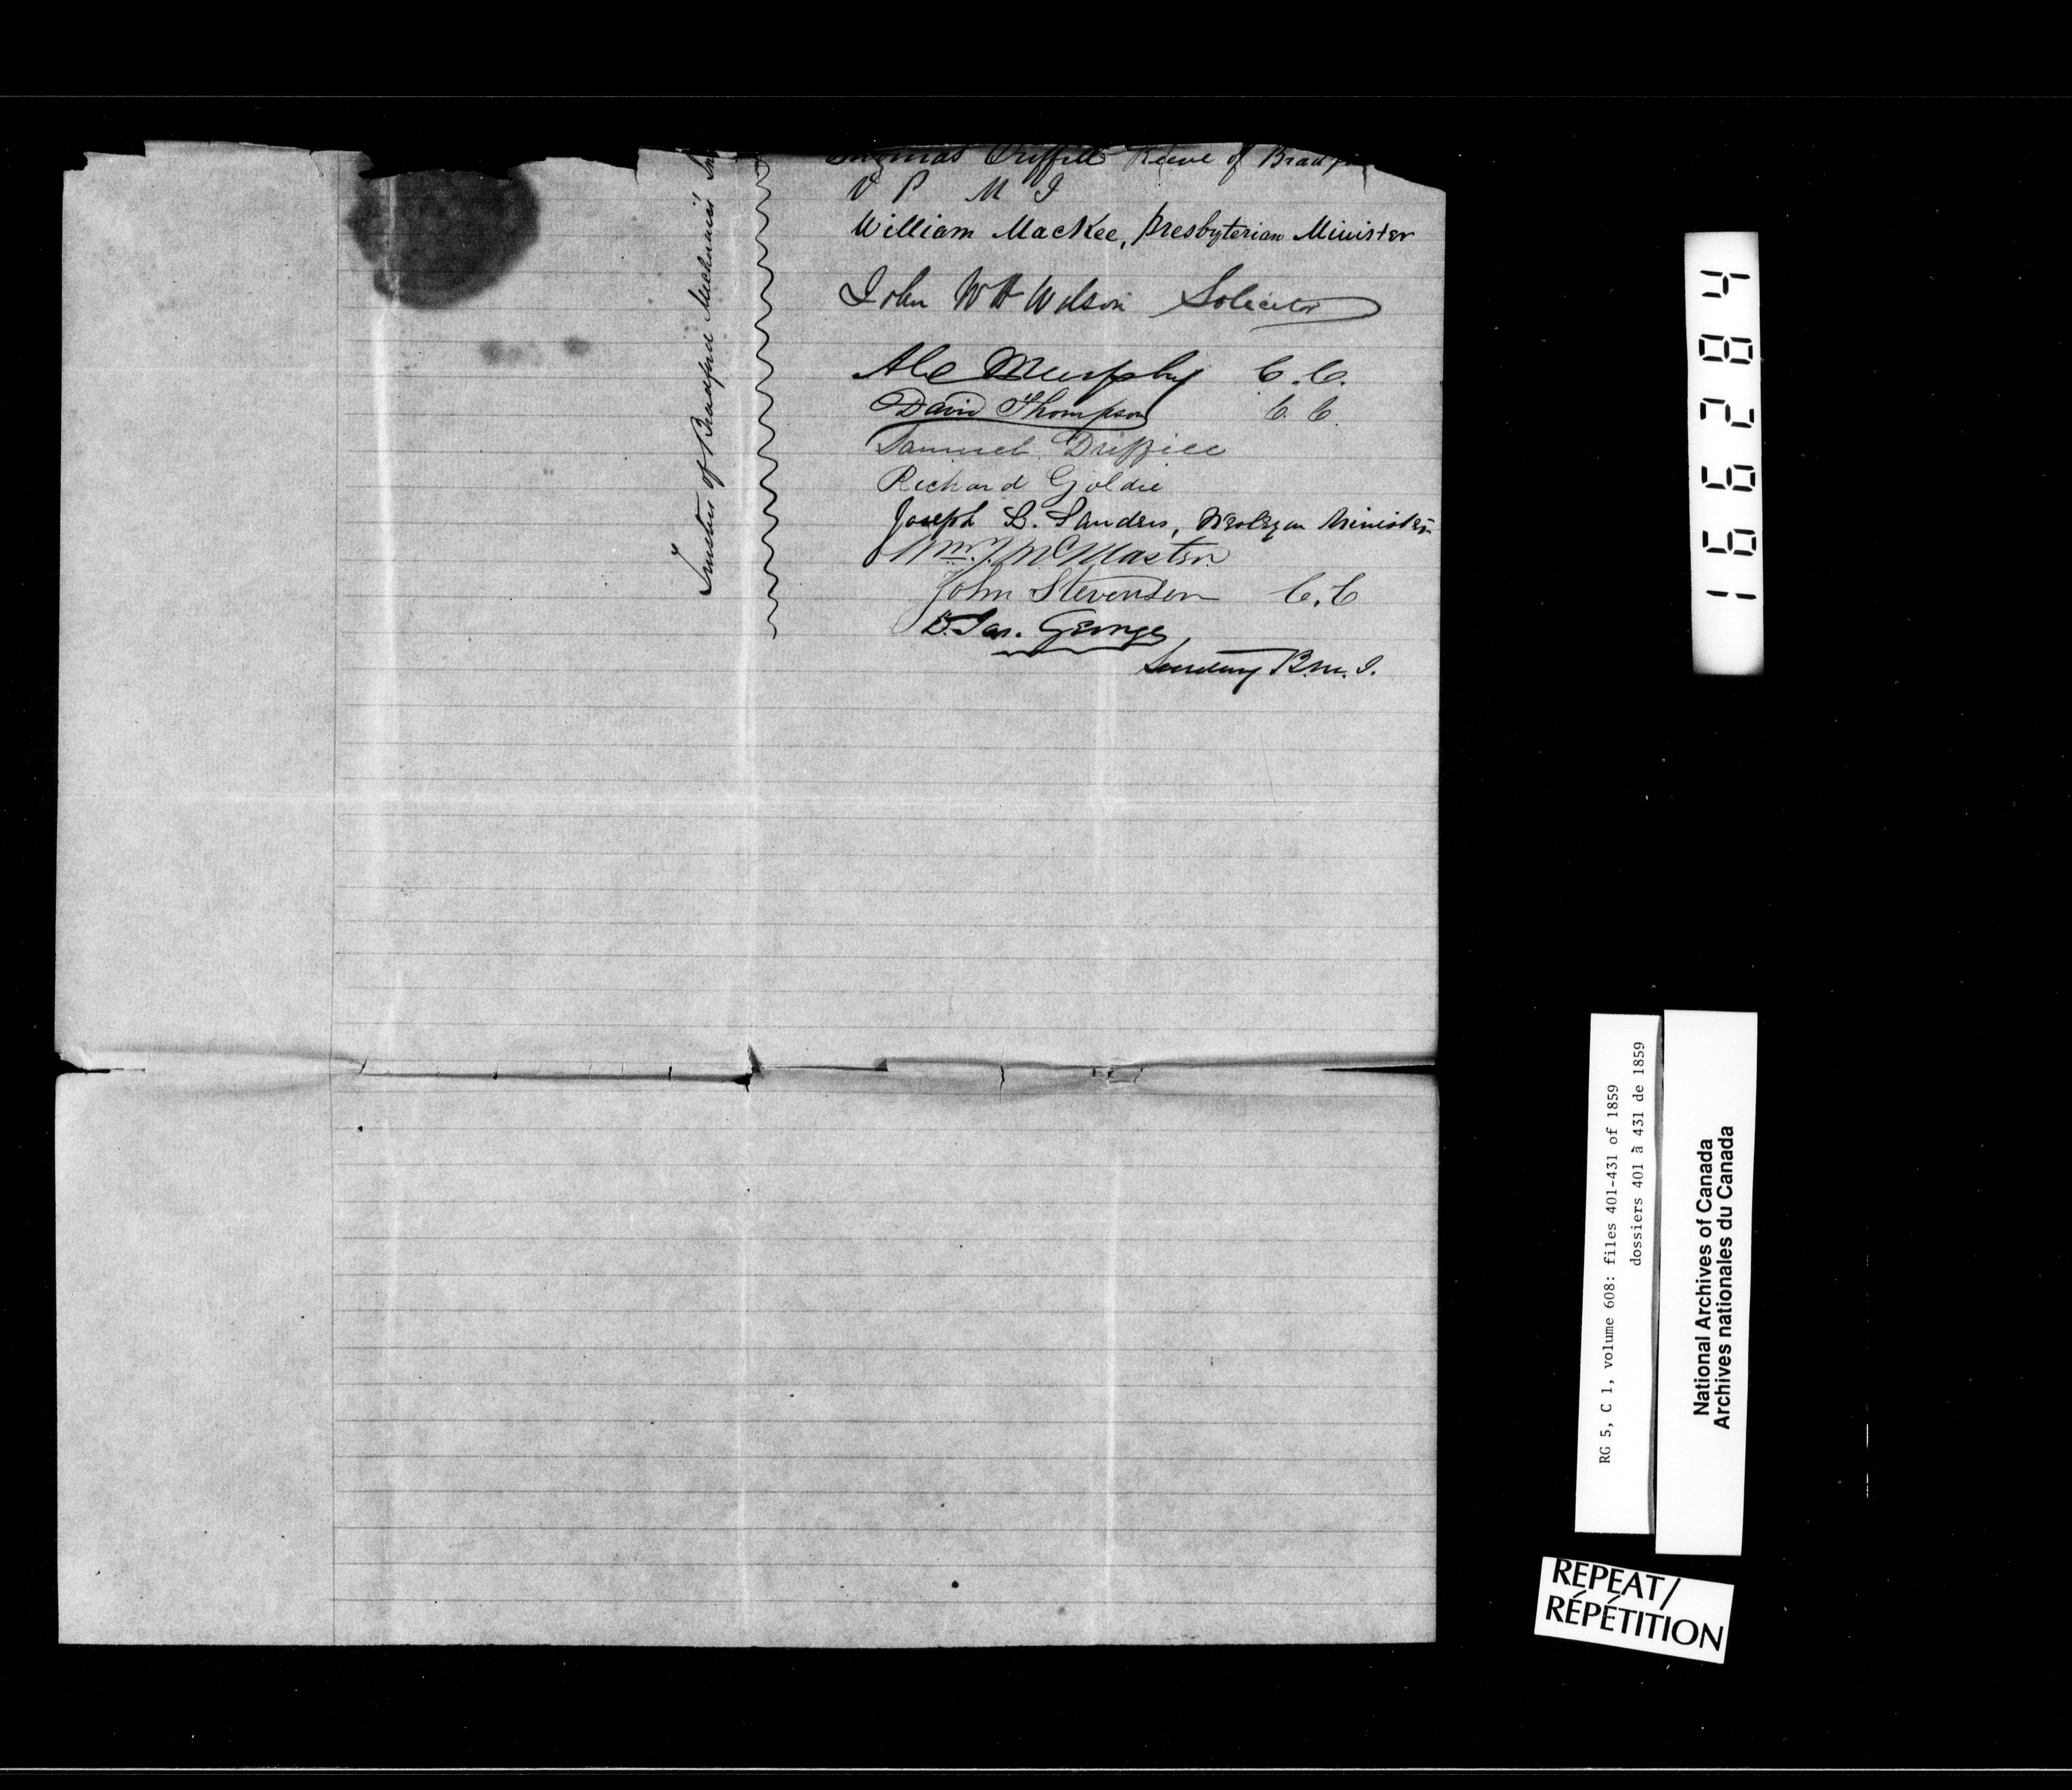 Thomas Driffill Reeve of Bradford
V P M I
William MacKee, Presbyterian Minister
John W H Wilson Solicitor
Murphy C.C.
David Thompson C. C.
Samuel Driffill
Richard Goldie
Joseph L. Sanders, Wesleyan Minister
Wm. McMaster
John Stevenson C.C
Jas. George,
Secretary B.M.I.
Trustees of Bradford Mechanics' Ins
166284
RG 5, C 1, volume 608: files 401-431 of 1859
dossiers 401 à 431 de 1859
National Archives of Canada
Archives nationales du Canada
REPEAT/
RÉPÉTITION